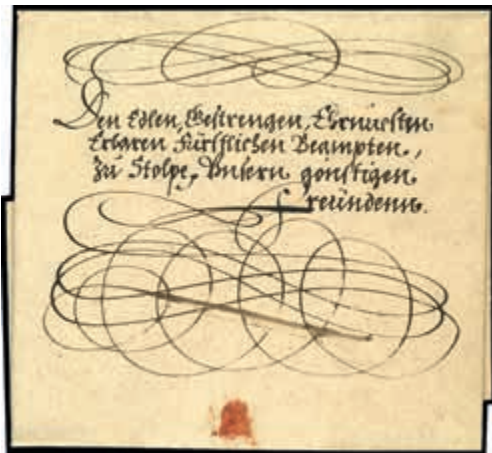 Den Edlen, Gestrengen, Ehrnuesten
Erbaren Fürstlichen Beampten,
zu Stolpe, Unsern gönstigen
freündenn.